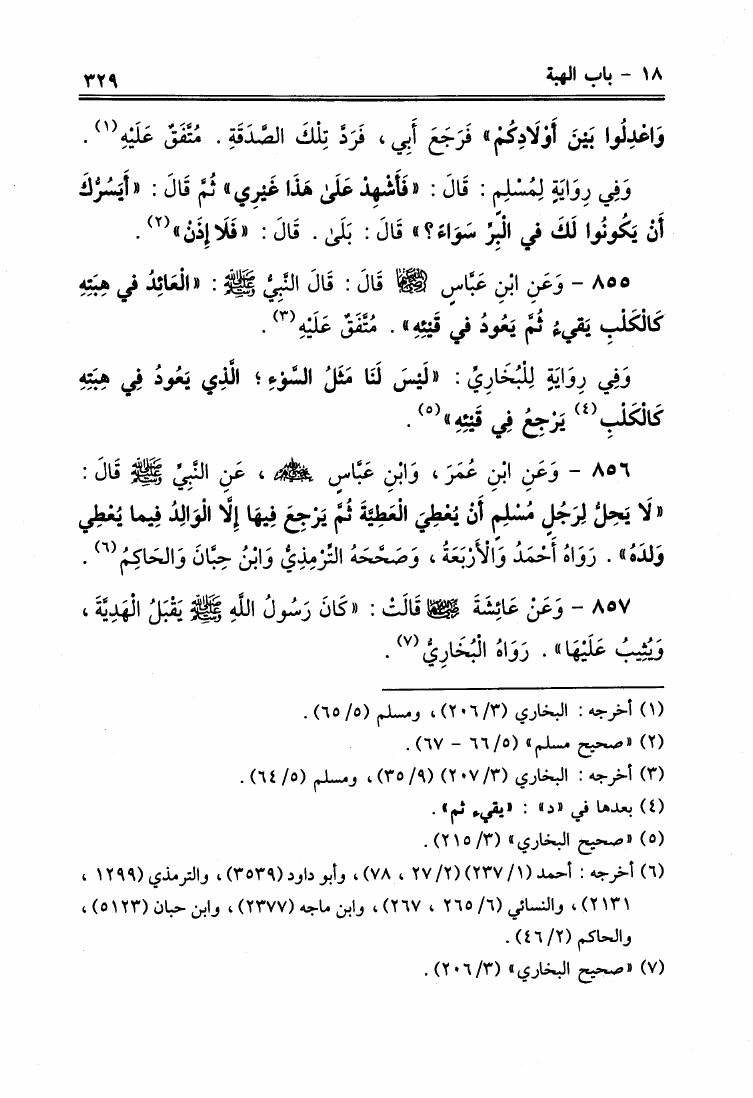 ١٨ - باب الهبة ٣٢٩
وَاعْدِلُوا بَيْنَ أَوْلَادِكُمْ» فَرَجَعَ أَبِي، فَرَدَّ تِلْكَ الصَّدَقَةِ. مُتَّفَقٌ عَلَيْهِ(١).
وَفِي رِوَايَةٍ لِمُسْلِمٍ: قَالَ: «فَأَشْهِدْ عَلَىٰ هَذَا غَيْرِي» ثُمَّ قَالَ: «أَيَسُرُّكَ
أَنْ يَكُونُوا لَكَ في الْبِرِّ سَوَاءً؟» قَالَ: بَلَىٰ. قَالَ: «فَلَا إِذَنْ»(٢).
٨٥٥ - وَعَنِ ابْنِ عَبَّاسٍ رضي الله عنهما قَالَ: قَالَ النَّبِيُّ ﷺ: «الْعَائِدُ في هِبَتِهِ
كَالْكَلْبِ يَقيءُ ثُمَّ يَعُودُ في قَيْئِهِ». مُتَّفَقٌ عَلَيْهِ(٣).
وَفِي رِوَايَةٍ لِلْبُخَارِيِّ: «لَيْسَ لَنَا مَثَلُ السَّوْءِ؛ الَّذِي يَعُودُ فِي هِبَتِهِ
كَالْكَلْبِ(٤) يَرْجِعُ فِي قَيْئِهِ»(٥).
٨٥٦ - وَعَنِ ابْنِ عُمَرَ، وَابْنِ عَبَّاسٍ رضي الله عنهم، عَنِ النَّبِيِّ ﷺ قَالَ:
«لَا يَحِلُّ لِرَجُلٍ مُسْلِمٍ أَنْ يُعْطِيَ الْعَطِيَّةَ ثُمَّ يَرْجِعَ فِيهَا إِلَّا الْوَالِدُ فِيما يُعْطِي
وَلَدَهُ». رَوَاهُ أَحْمَدُ وَالْأَرْبَعَةُ، وَصَحَّحَهُ التِّرْمِذِيُّ وَابْنُ حِبَّانَ وَالحَاكِمُ(٦).
٨٥٧ - وَعَنْ عَائِشَةَ رضي الله عنها قَالَتْ: «كَانَ رَسُولُ اللَّهِ ﷺ يَقْبَلُ الْهَدِيَّةَ،
وَيُثِيبُ عَلَيْهَا». رَوَاهُ الْبُخَارِيُّ(٧).
(١) أخرجه: البخاري (٢٠٦/٣)، ومسلم (٦٥/٥).
(٢) «صحيح مسلم» (٦٦/٥ - ٦٧).
(٣) أخرجه: البخاري (٢٠٧/٣) (٣٥/٩)، ومسلم (٦٤/٥).
(٤) بعدها في «د»: «يقيء ثم».
(٥) «صحيح البخاري» (٢١٥/٣).
(٦) أخرجه: أحمد (٢٣٧/١) (٢٧/٢، ٧٨)، وأبو داود (٣٥٣٩)، والترمذي (١٢٩٩،
٢١٣١)، والنسائي (٢٦٥/٦، ٢٦٧)، وابن ماجه (٢٣٧٧)، وابن حبان (٥١٢٣)،
والحاكم (٤٦/٢).
(٧) «صحيح البخاري» (٢٠٦/٣).